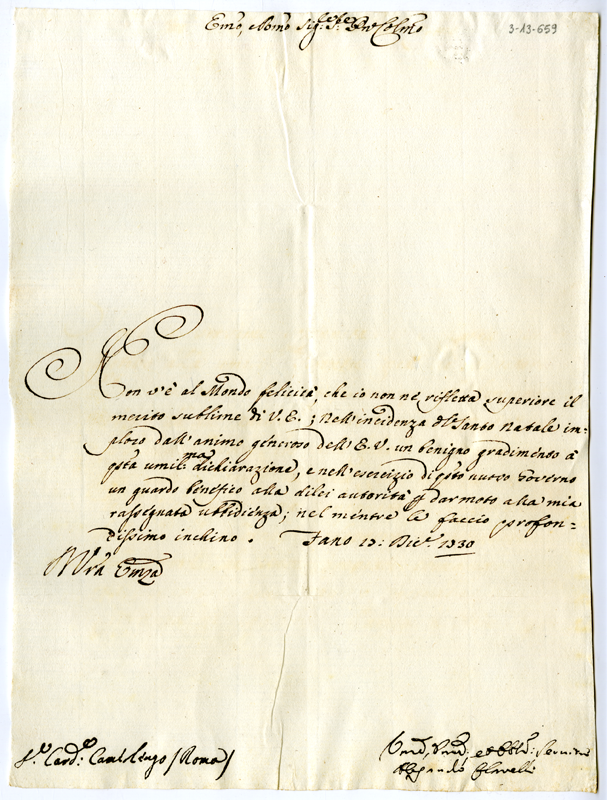 3-13-659
Emo, e Rmo Sig.r Sig.r Pne Colmo
Non v'è al Mondo felicità, che io non ne rifletta superiore il
merito sublime di V. E.; Nell'incidenza del Santo Natale im=
ploro dall'animo generoso dell'E. V. un benigno gradimento à
qsta umil.ma dichiarazione, e nell'esercizio di qsto nuovo Governo
un guardo benefico alla dilei autorità p dar moto alla mia
rassegnata ubbidienza; nel mentre le faccio profon=
dissimo inchino. Fano 13: Dic.e 1730
Vra Emza
S.r Card.l Camerlengo (Roma)
Umo, Devo, et Obblo: Servitore